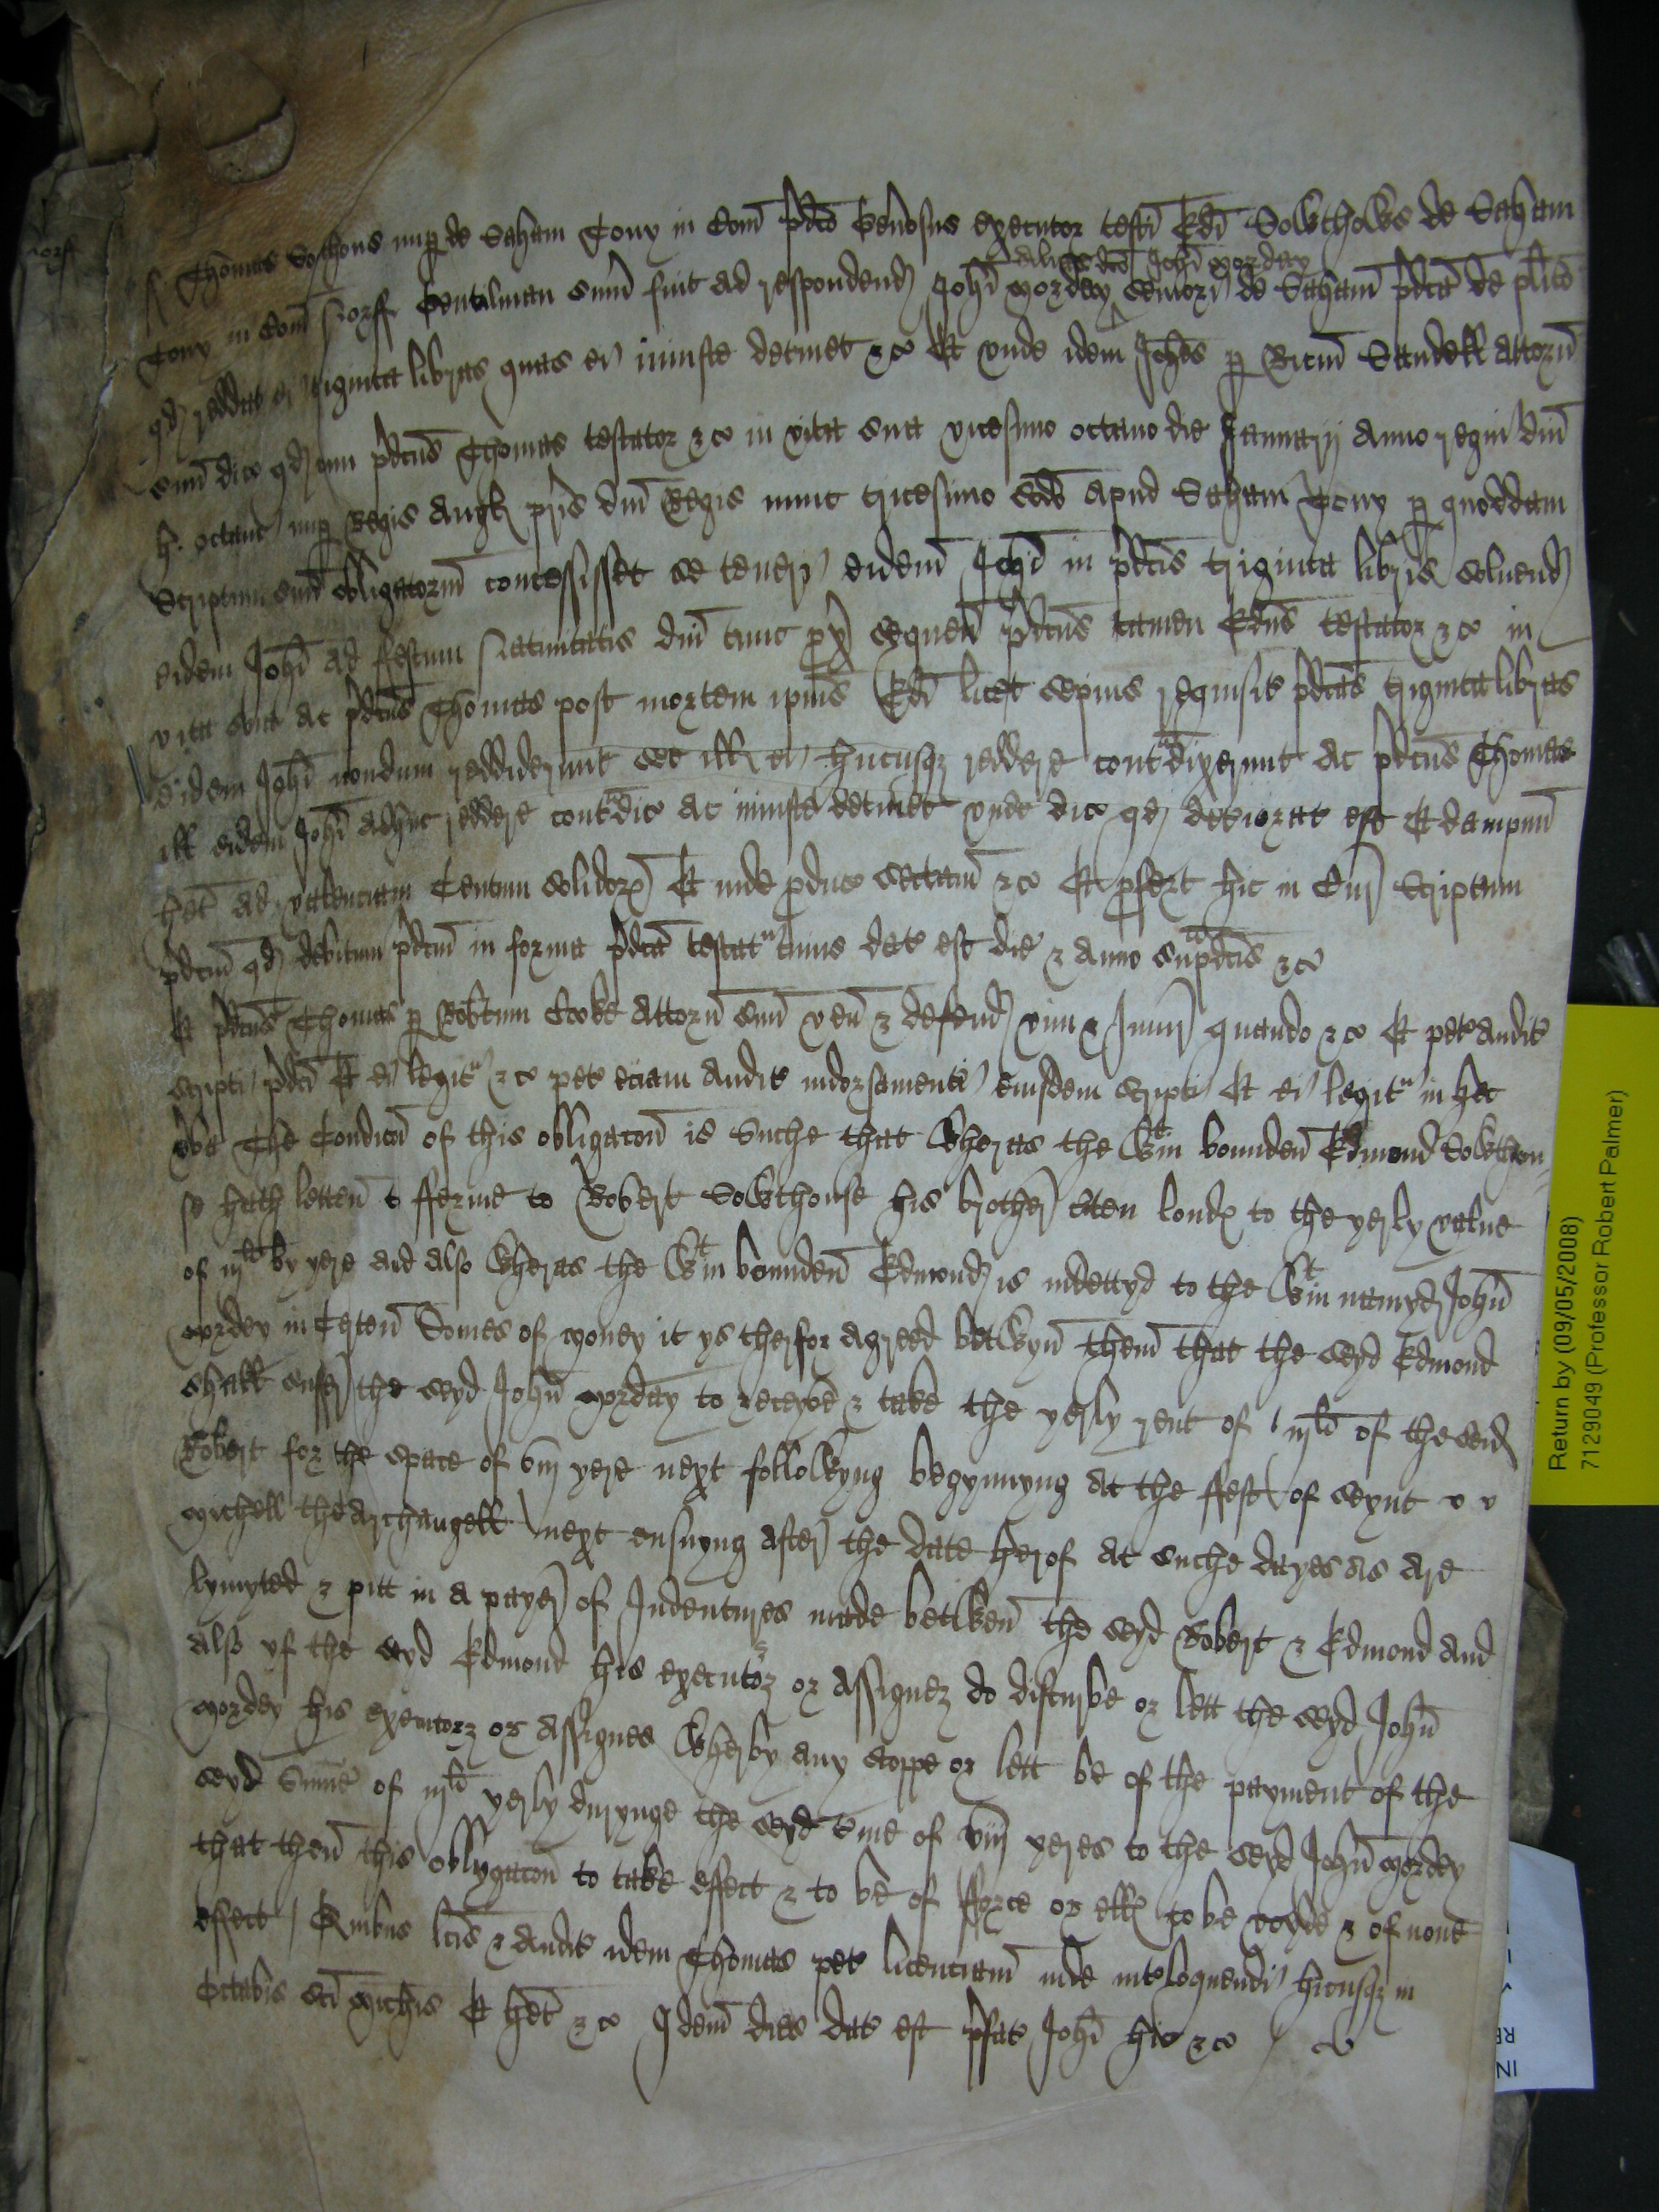 Norff
Thomas Sothous nup de Saham Tony in Com pdco Genosus executor testi Edi Sowthows de Saham
alias dco Johi Morday
Tony in Com Norff Gentilman sum fuit ad respondend Johi Mordey seniori de Saham pdca de plito
qd reddat ei triginta libras quas ei iniuste detinet &c Et unde idem Johes p Ricm Standell attorn
suu dic qd cum pdcus Thomas testator &c in vita sua vicesimo octavo die Januarij anno regni dni
H. octavi nup Regis Angl pris dni Regis nunc tricesimo scdo apud Saham Tony p quoddam
Scriptum suu obligatorm concessisset se teneri eidem Johi in pdcis triginta libris solvend
eidem Johi ad festum Nativitatis dni tunc px sequen pdcus tamen Edus testator &c in
vita sua ac pdcus Thomas post mortem ipius Edi licet sepius requisit pdcas triginta libras
eidem Johi nondum reddiderunt set ill ei hucusq reddere contadixerunt ac pdcus Thomas
ill eidem Johi adhuc reddere contadic ac iniuste detinet unde dic qd deteriorat est Et dampnu
het ad valenciam Centum solidor Et inde pduc sectam &c Et pfert hic in Cur Scriptum
pdcm qd debitum pdcm in forma pdca testat cuius dat est die & anno supdcis &c
Et pdcus Thomas p Robtum Coke attorn suu ven & defend vim & Iniur quando &c Et pet audit
scripti pdci Et ei legit &c pet eciam audit indorsamenti eiusdem scripti Et ei legit in hec
vba The Condicon of this obligacon is Suche that Wheras the Wtin bounden Edmond Sowthou
se hath letten to fferme to Robert Sowthouse his brother cten londs to the yerly value
of iijli by yere and also Wheras the Wtin bounden Edmond is indettyd to the Wtin namyd John
Mordey in Certen Somes of money it ys therfor agreed betwyn them that the seyd Edmond
shall suffer the seyd John Morday to receyve & take the yerly rent of iijli of the seid
Robert for the space of viij yere next followyng begynnyng at the ffest of Seynt
Michell the Archangell next ensuyng after the date herof at suche dayes as are
lymyted & putt in a payer of Indentures made betwen the seyd Robert & Edmond And
also yf the seyd Edmond his executors or assignez do disturbe or lett the seyd John
Mordey his executorz or assignes Wherby any stoppe or lett be of the payment of the
seyd Sume of iijli yerly durynge the seyd tme of viij yeres to the seyd John Mordey
that then this obllygacon to take effect & to be of fforce or ells to be voyde & of none
effect / Quibus lcis & audit idem Thomas pet licenciam inde intloquendi hicusq in
Octabis sci Michis Et het &c Idem dies dat est pfat Johi hic &c /
Return by (09/05/2008)
7129049 (Professor Robert Palmer)
IN